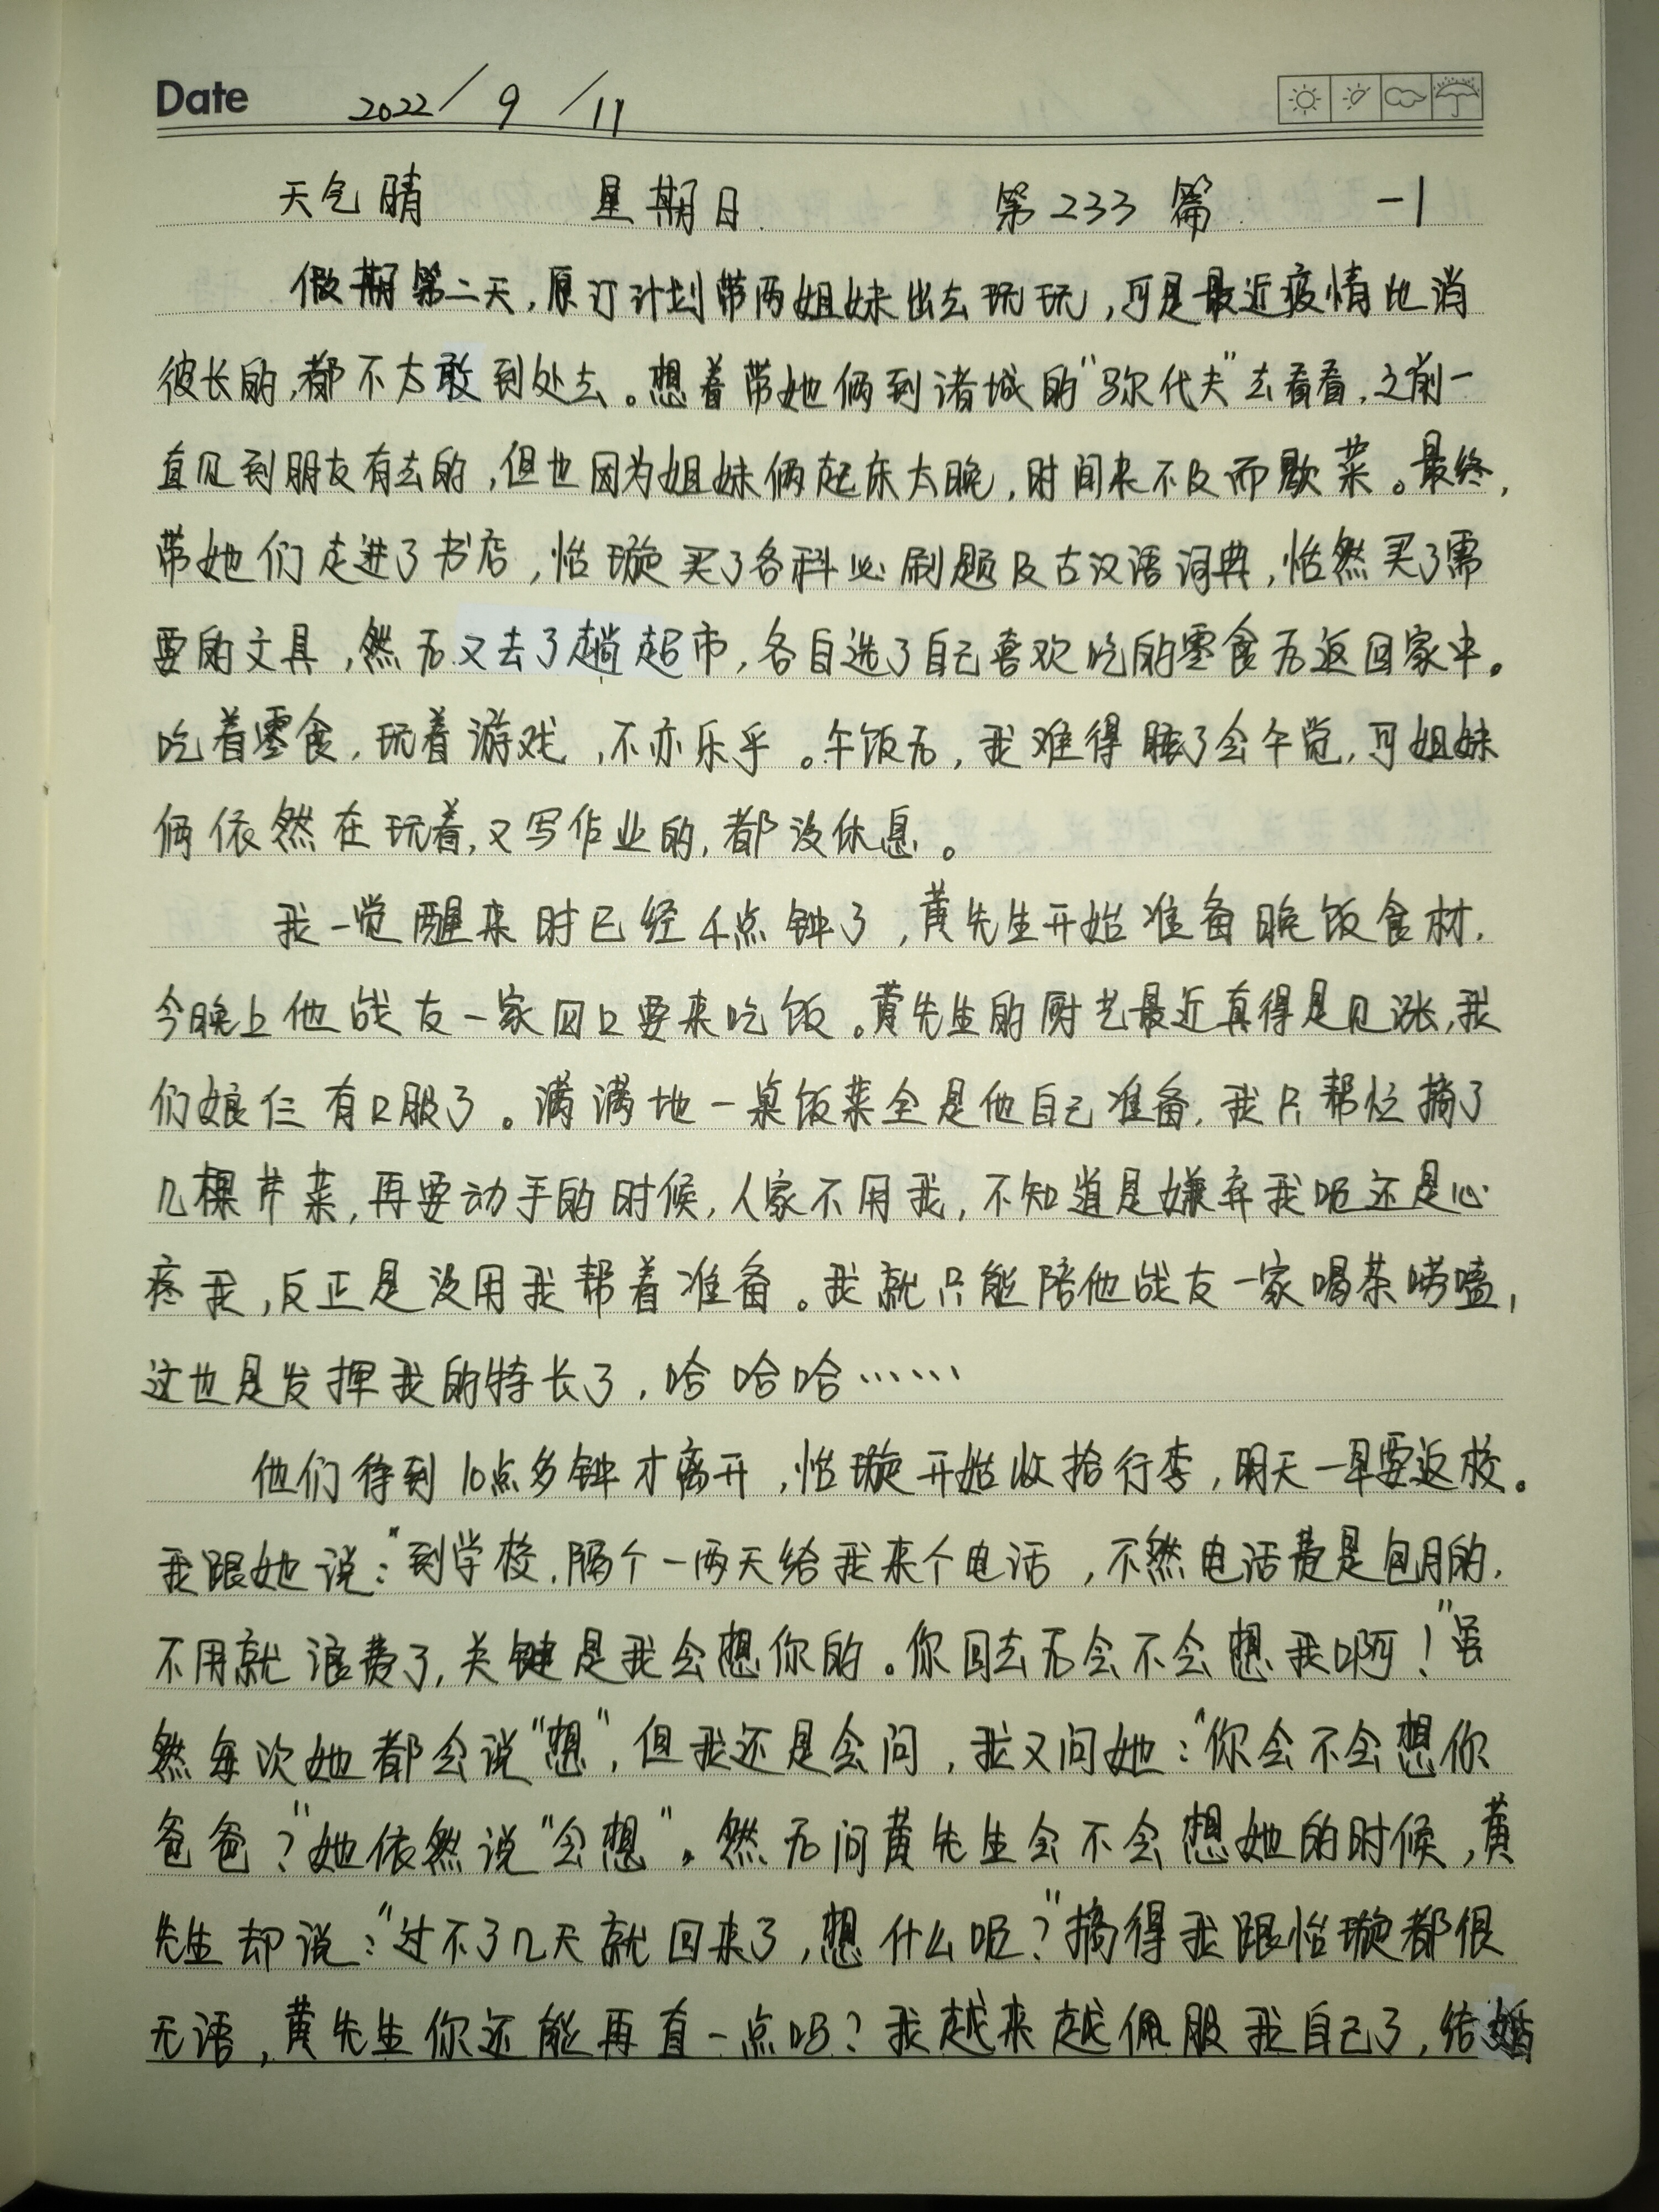 Date 2022/9/11
天气晴 星期日 第233篇 -1
假期第二天,原订计划带两姐妹出去玩玩,可是最近疫情此消
彼长的,都不太敢到处去。想着带她俩到诸城的“马尔代夫”去看看,之前一
直见到朋友有去的,但也因为姐妹俩起床太晚,时间来不及而歇菜。最终,
带她们走进了书店,怡璇买了各科必刷题及古汉语词典,怡然买了需
要的文具,然后又去了趟超市,各自选了自己喜欢吃的零食后返回家中。
吃着零食,玩着游戏,不亦乐乎。午饭后,我难得睡了会午觉,可姐妹
俩依然在玩着,又写作业的,都没休息。
我一觉醒来时已经4点钟了,黄先生开始准备晚饭食材,
今晚上他战友一家四口要来吃饭。黄先生的厨艺最近真得是见涨,我
们娘仨有口服了。满满地一桌饭菜全是他自己准备,我只帮忙摘了
几棵芹菜,再要动手的时候,人家不用我,不知道是嫌弃我呢还是心
疼我,反正是没用我帮着准备。我就只能陪他战友一家喝茶唠嗑,
这也是发挥我的特长了,哈哈哈……
他们待到10点多钟才离开,怡璇开始收拾行李,明天一早要返校。
我跟她说:“到学校,隔个一两天给我来个电话,不然电话费是包月的,
不用就浪费了,关键是我会想你的。你回去后会不会想我啊!”虽
然每次她都会说“想”,但我还是会问,我又问她:“你会不会想你
爸爸?”她依然说“会想”。然后问黄先生会不会想她的时候,黄
先生却说:“过不了几天就回来了,想什么呢?”搞得我跟怡璇都很
无语,黄先生你还能再直一点吗?我越来越佩服我自己了,结婚